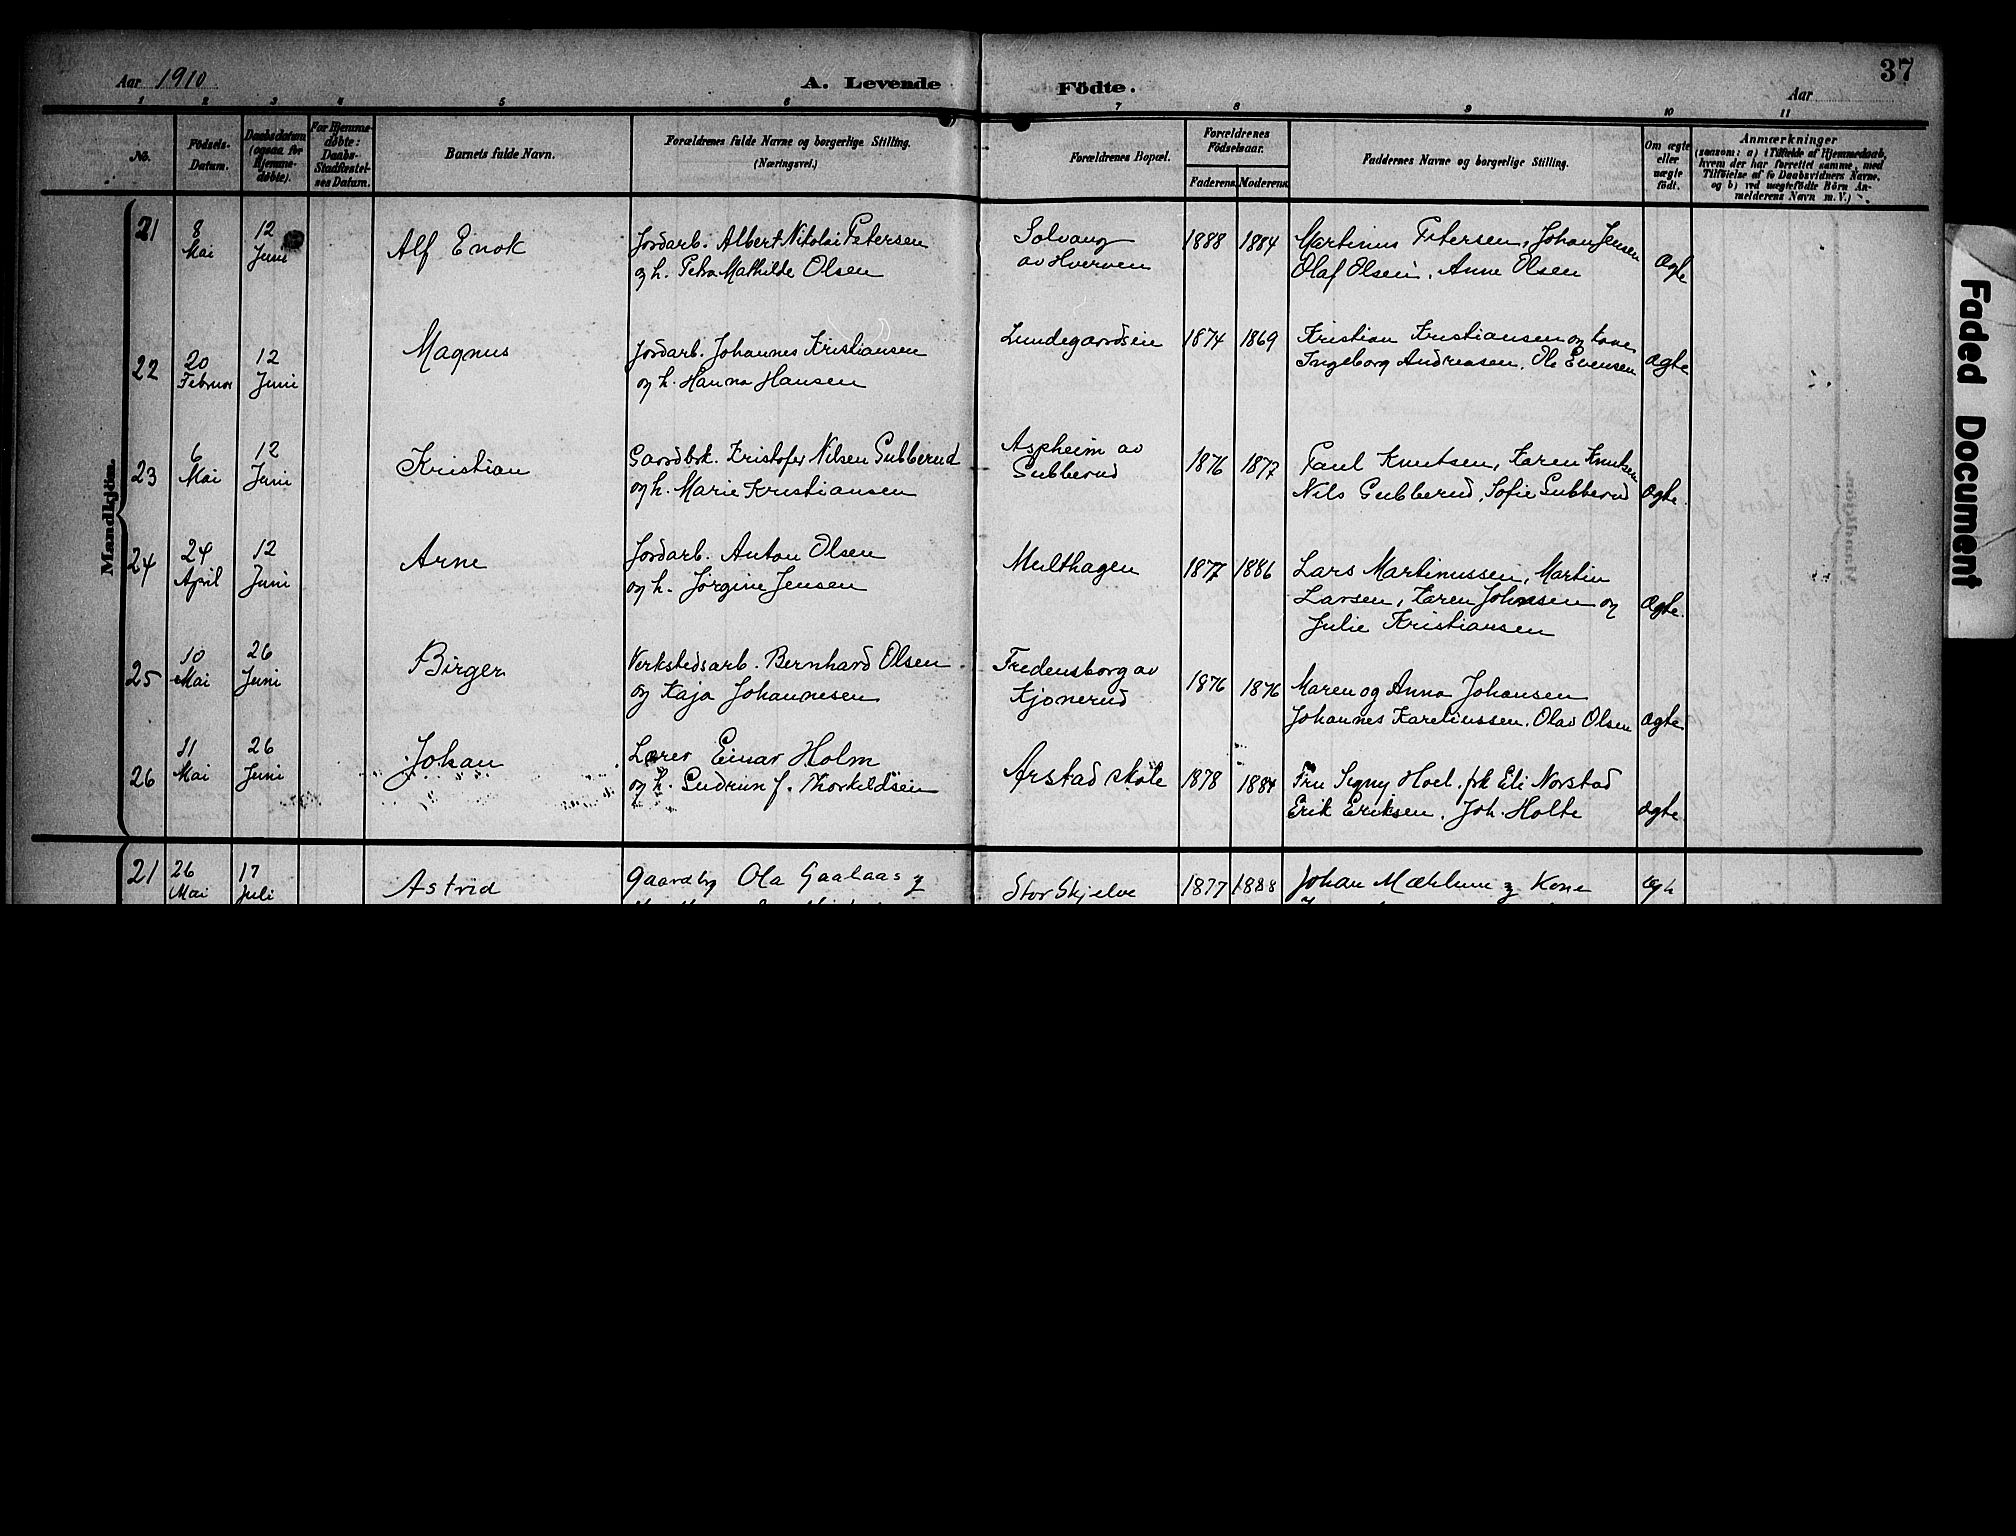 Aar 1910 A. Levende Födte. Aar 37
1 2 3 4 5 6 7 8 9 10 11
No.
Födsels-
Datum.
Daabsdatum
(ogsaa for
Hjemme-
døbte).
For Hjemme-
døbte:
Daabs-
Stadfæstel-
ses Datum.
Barnets fulde Navn.
Forældrenes fulde Navne og borgerlige Stilling.
(Næringsvei.)
Forældrenes Bopæl.
Forældrenes
Födselsaar.
Faderens Moderens
Faddernes Navne og borgerlige Stilling.
Om ægte
eller
uægte
födt.
Anmærkninger
(saasom: a) i Tilfælde af Hjemmedaab,
hvem der har forrettet samme, med
Tilföielse af to Daabsvidners Navne,
og b) ved uægtefödte Börn An-
melderens Navn m. V.)
Mandkjön.
21 8 12 Alf Enok Jordarb. Albert Nikolai Petersen Solvang 1888 1884 Martinus Petersen, Johan Jensen
Mai Juni og h. Petra Mathilde Olsen av Hverven Olaf Olsen, Anne Olsen Ægte
22 20 12 Magnus Jordarb. Johannes Kristiansen Lundegaardseie 1874 1869 Kristian Kristiansen og kone
Februar Juni og h. Hanna Hansen Ingeborg Andreasen, Ole Evensen Ægte
23 6 12 Kristian Gaardbrk. Kristofer Nilsen Gubberud Aspheim av 1876 1877 Paul Knutsen, Karen Knutsen
Mai Juni og h. Marie Kristiansen Gubberud Nils Gubberud, Sofie Gubberud Ægte.
24 24 12 Arne Jordarb. Anton Olsen Multhagen 1877 1886 Lars Martinussen, Martin
April Juni og h. Jørgine Jensen Larsen, Karen Johnsen og Ægte.
Julie Kristiansen
25 10 26 Birger Verkstedsarb. Bernhard Olsen Fredensborg av 1876 1876 Maren og Anna Johansen
Mai Juni og Kaja Johannesen Kjonerud Johannes Kareliussen, Olav Olsen Ægte
26 11 26 Johan Lærer Einar Holm Arstad skole 1878 1884 Fru Signy Hoel, frk Eli Norstad
Mai Juni og h. Gudrun f. Thorkildsen Erik Eriksen, Joh. Holte Ægte
21 26 17 Astrid Gaardbr Ola Gaalaas og Stor Skjelve 1877 1888 Johan Mæhlum og Kone Ægte
Mai Juli
Faded Document